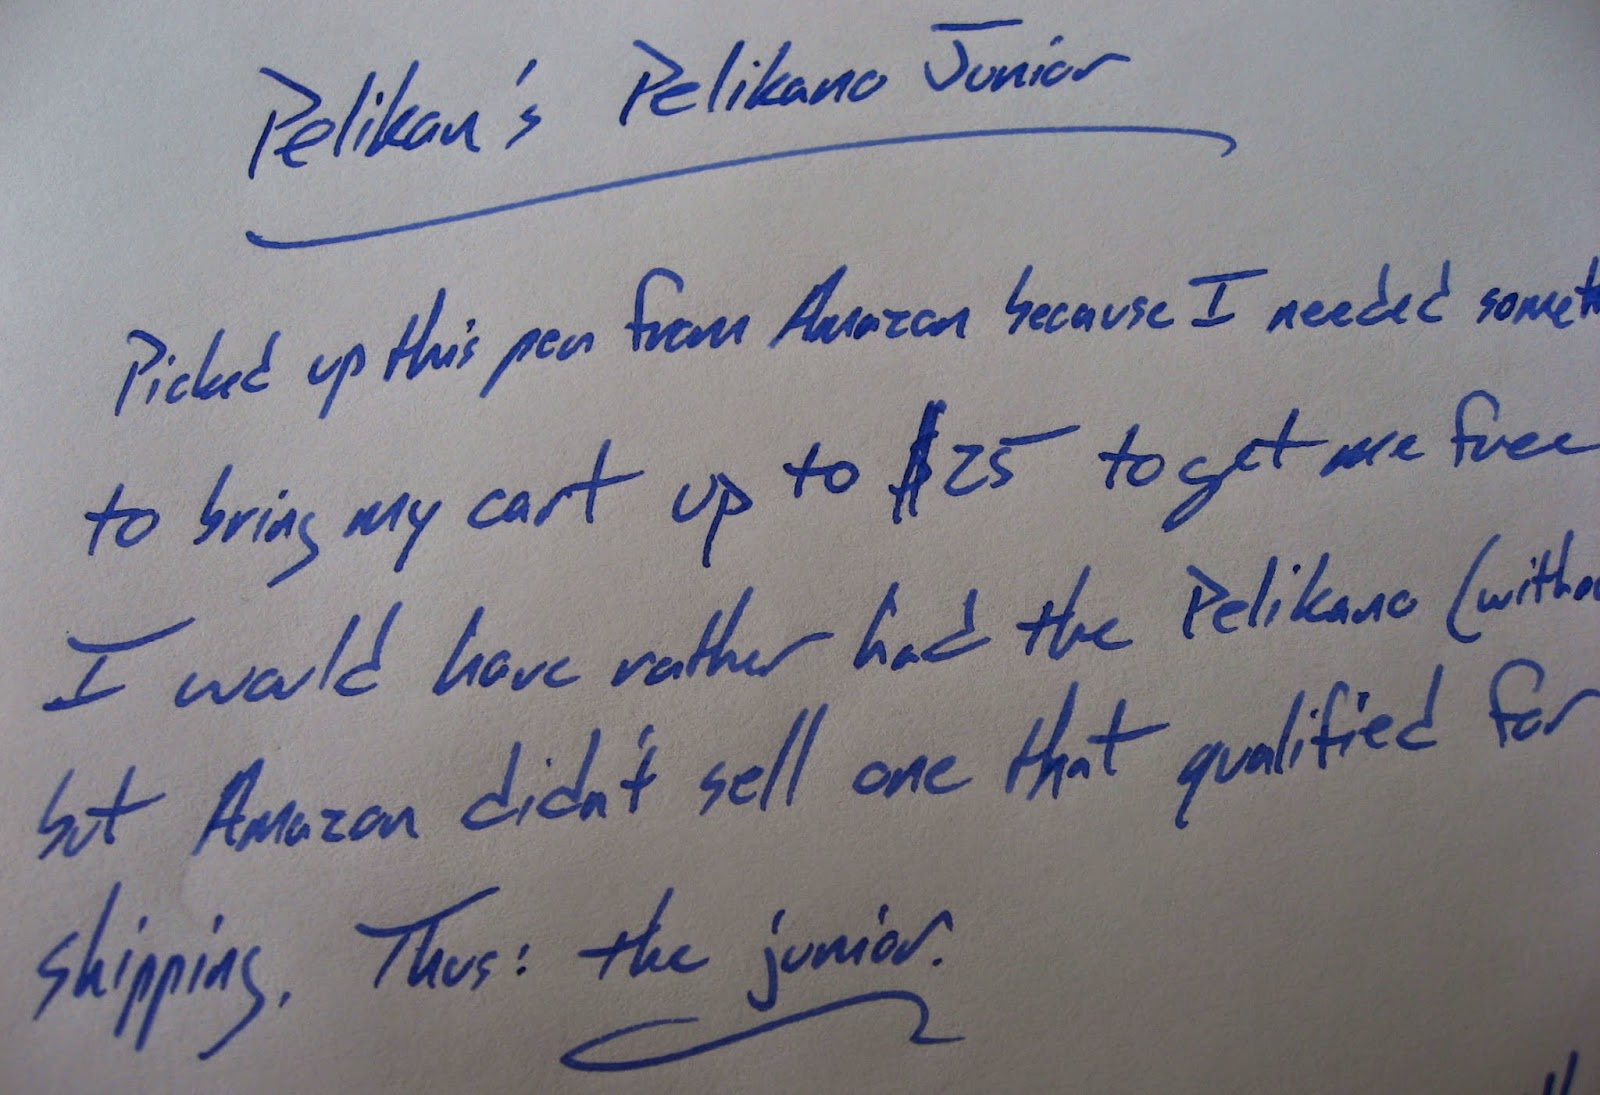 Pelikan's Pelikano Junior
Picked up this pen from Amazon because I needed someth
to bring my cart up to $25 to get me free
I would have rather had the Pelikano (witho
but Amazon didn't sell one that qualified for
shipping. Thus: the junior.